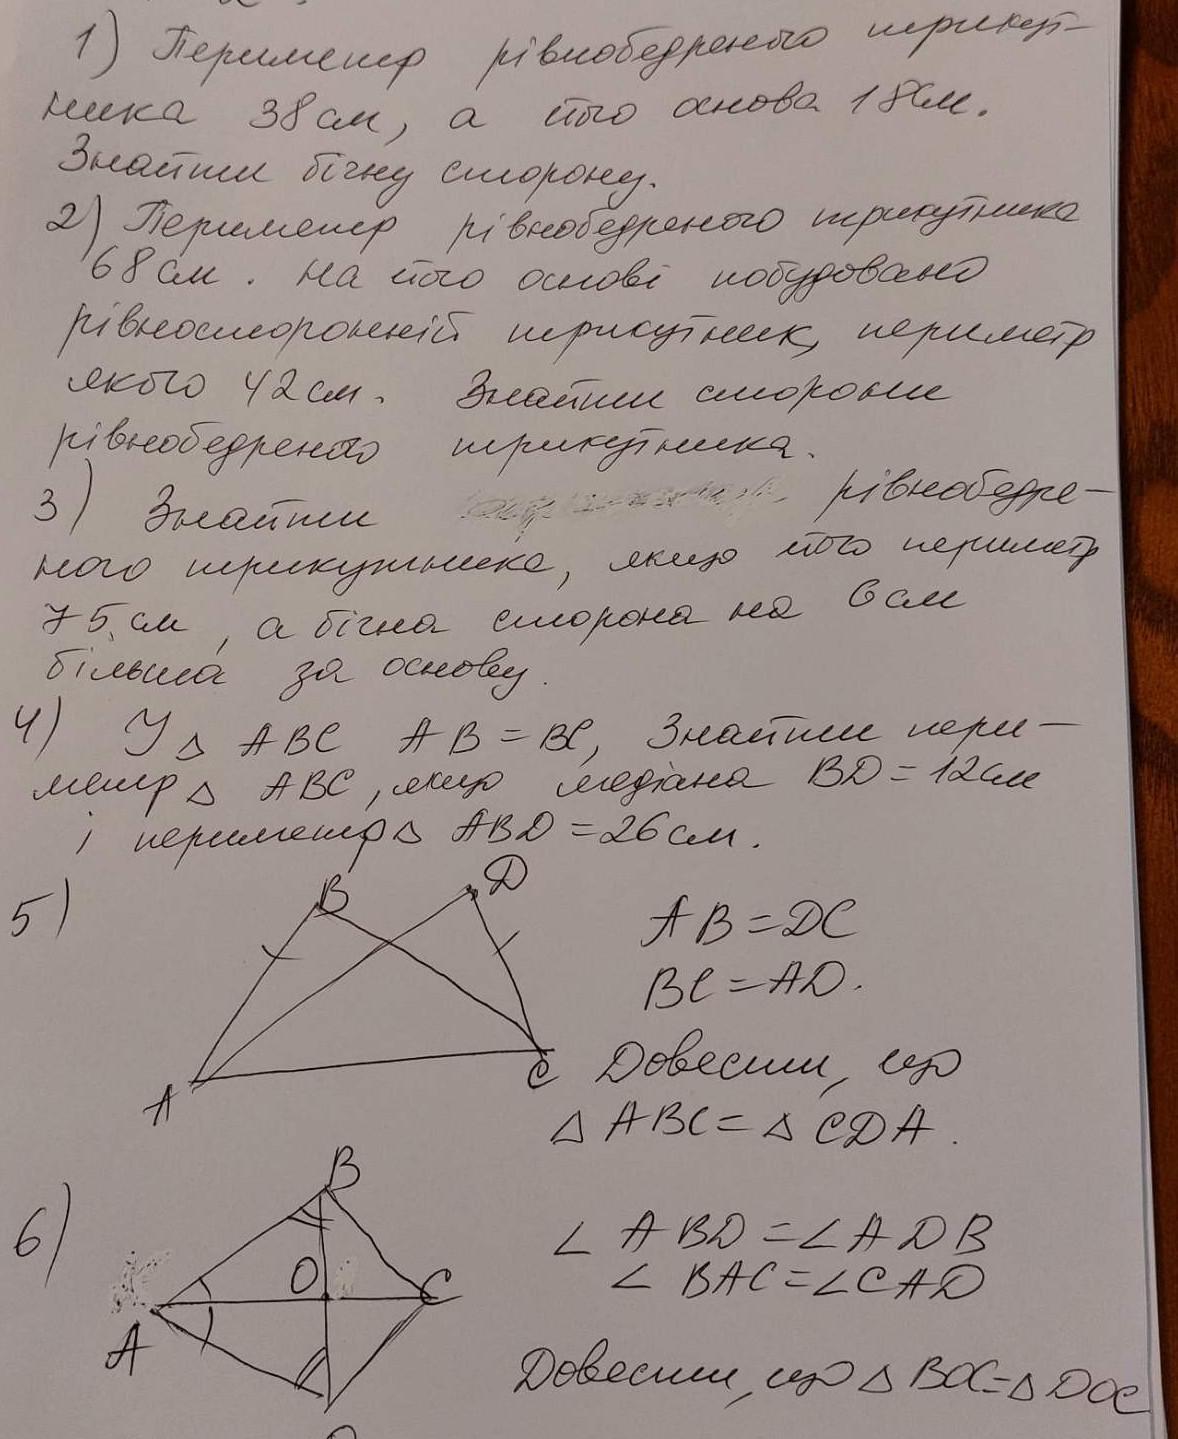 1) Периметр рівнобедреного трикут-
ника 38 см, а його основа 18 см.
Знайти бічну сторону.
2) Периметр рівнобедреного трикутника
68 см. На його основі побудовано
рівносторонній трикутник, периметр
якого 42 см. Знайти сторони
рівнобедреного трикутника.
3) Знайти рівнобедре-
ного трикутника, якщо його периметр
75 см, а бічна сторона на 6 см
більша за основу.
4) У △ ABC AB = BC, Знайти пери-
метр △ ABC, якщо медіана BD = 12 см
і периметр △ ABD = 26 см.
5) B D
AB = DC
BC = AD.
A C Довести, що
△ ABC = △ CDA.
6) B
∠ ABD = ∠ ADB
O C ∠ BAC = ∠ CAD
A
Довести, що △ BOC = △ DOC